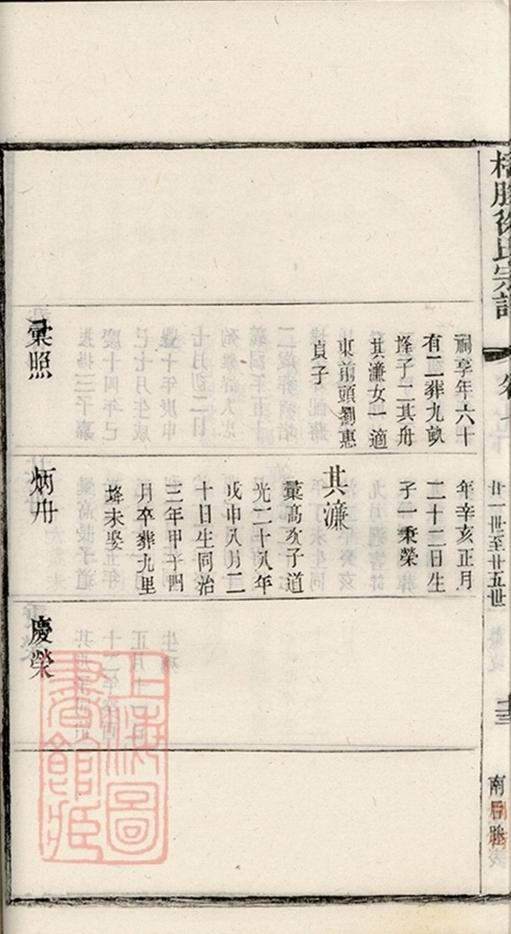 梧塍徐氏宗譜
廿一世至廿五世
祠享年六十
有二葬九畝
塍子二其舟
其濂女一適
東前頭劉惠
貞子
彙照
年辛亥正月
二十二日生
子一秉榮
其濂
彙高次子道
光二十八年
戊申八月二
十日生同治
三年甲子四
月卒葬九里
塍未娶
炳舟
慶榮
上海圖
書館藏